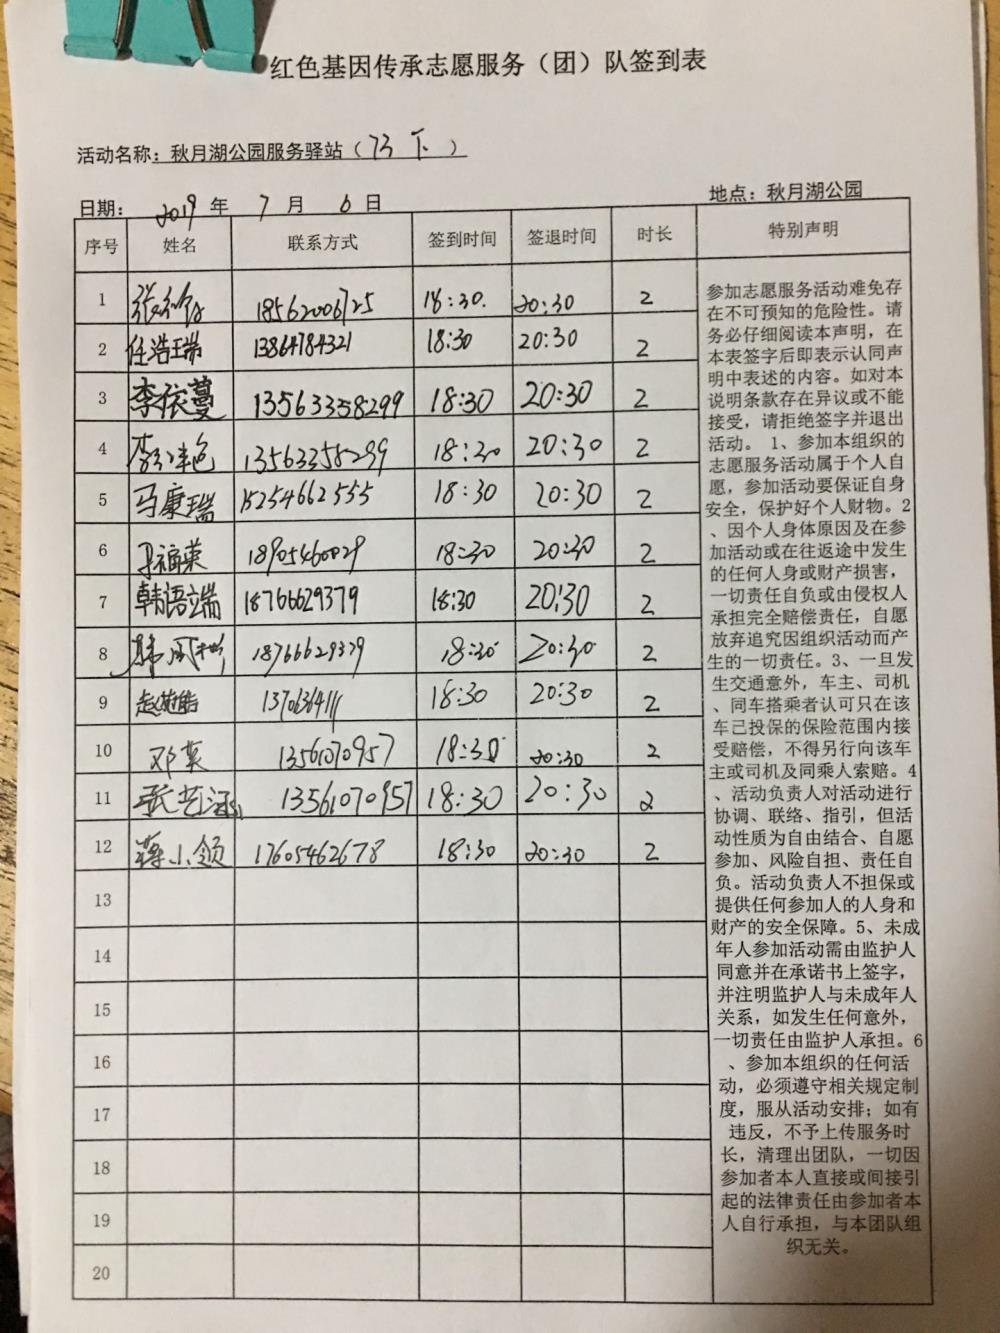 红色基因传承志愿服务（团）队签到表
活动名称：秋月湖公园服务驿站（73 下）
日期： 2019 年 7 月 6 日
地点：秋月湖公园
序号 姓名 联系方式 签到时间 签退时间 时长 特别声明
1 18562006725 18:30. 20:30 2
2 任浩瑞 13864784321 18:30 20:30 2
3 李依蔓 13563358299 18:30 20:30 2
4 13563358299 18:30 20:30 2
5 马康瑞 15254662555 18:30 20:30 2
6 18905460029 18:30 20:30 2
7 韩语端 18766629379 18:30 20:30 2
8 18766629379 18:30 20:30 2
9 18:30 20:30 2
10 邓英 13561070957 18:30 20:30 2
11 张艺涵 13561070957 18:30 20:30 2
12 蒋小领 17605462678 18:30 20:30 2
13
14
15
16
17
18
19
20
参加志愿服务活动难免存
在不可预知的危险性。请
务必仔细阅读本声明，在
本表签字后即表示认同声
明中表述的内容。如对本
说明条款存在异议或不能
接受，请拒绝签字并退出
活动。 1、参加本组织的
志愿服务活动属于个人自
愿，参加活动要保证自身
安全，保护好个人财物。2
、因个人身体原因及在参
加活动或在往返途中发生
的任何人身或财产损害，
一切责任自负或由侵权人
承担完全赔偿责任，自愿
放弃追究因组织活动而产
生的一切责任。3、一旦发
生交通意外，车主、司机
、同车搭乘者认可只在该
车已投保的保险范围内接
受赔偿，不得另行向该车
主或司机及同乘人索赔。4
、活动负责人对活动进行
协调、联络、指引，但活
动性质为自由结合、自愿
参加、风险自担、责任自
负。活动负责人不担保或
提供任何参加人的人身和
财产的安全保障。5、未成
年人参加活动需由监护人
同意并在承诺书上签字，
并注明监护人与未成年人
关系，如发生任何意外，
一切责任由监护人承担。6
、参加本组织的任何活
动，必须遵守相关规定制
度，服从活动安排；如有
违反，不予上传服务时
长，清理出团队，一切因
参加者本人直接或间接引
起的法律责任由参加者本
人自行承担，与本团队组
织无关。